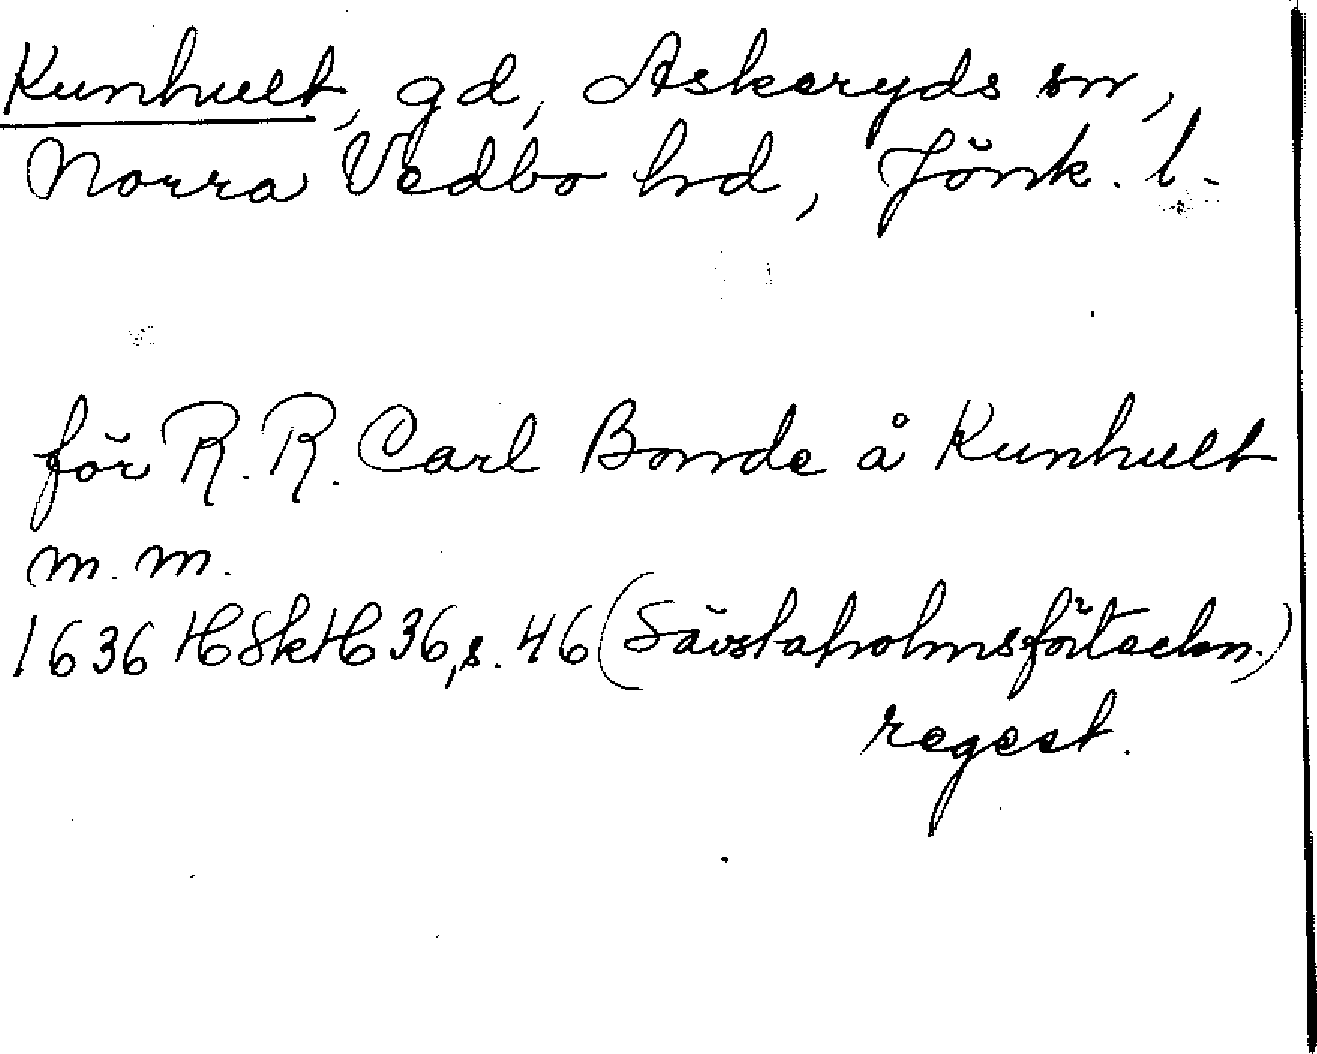 Kunhult, gd, Askeryds sn,
Norra Vedbo hd, Jönk. l.
för R. R. Carl Bonde å Kunhult
m. m.
1636 HSkH 36, s. 46 (Sävstaholmsförteckn.)
regest.